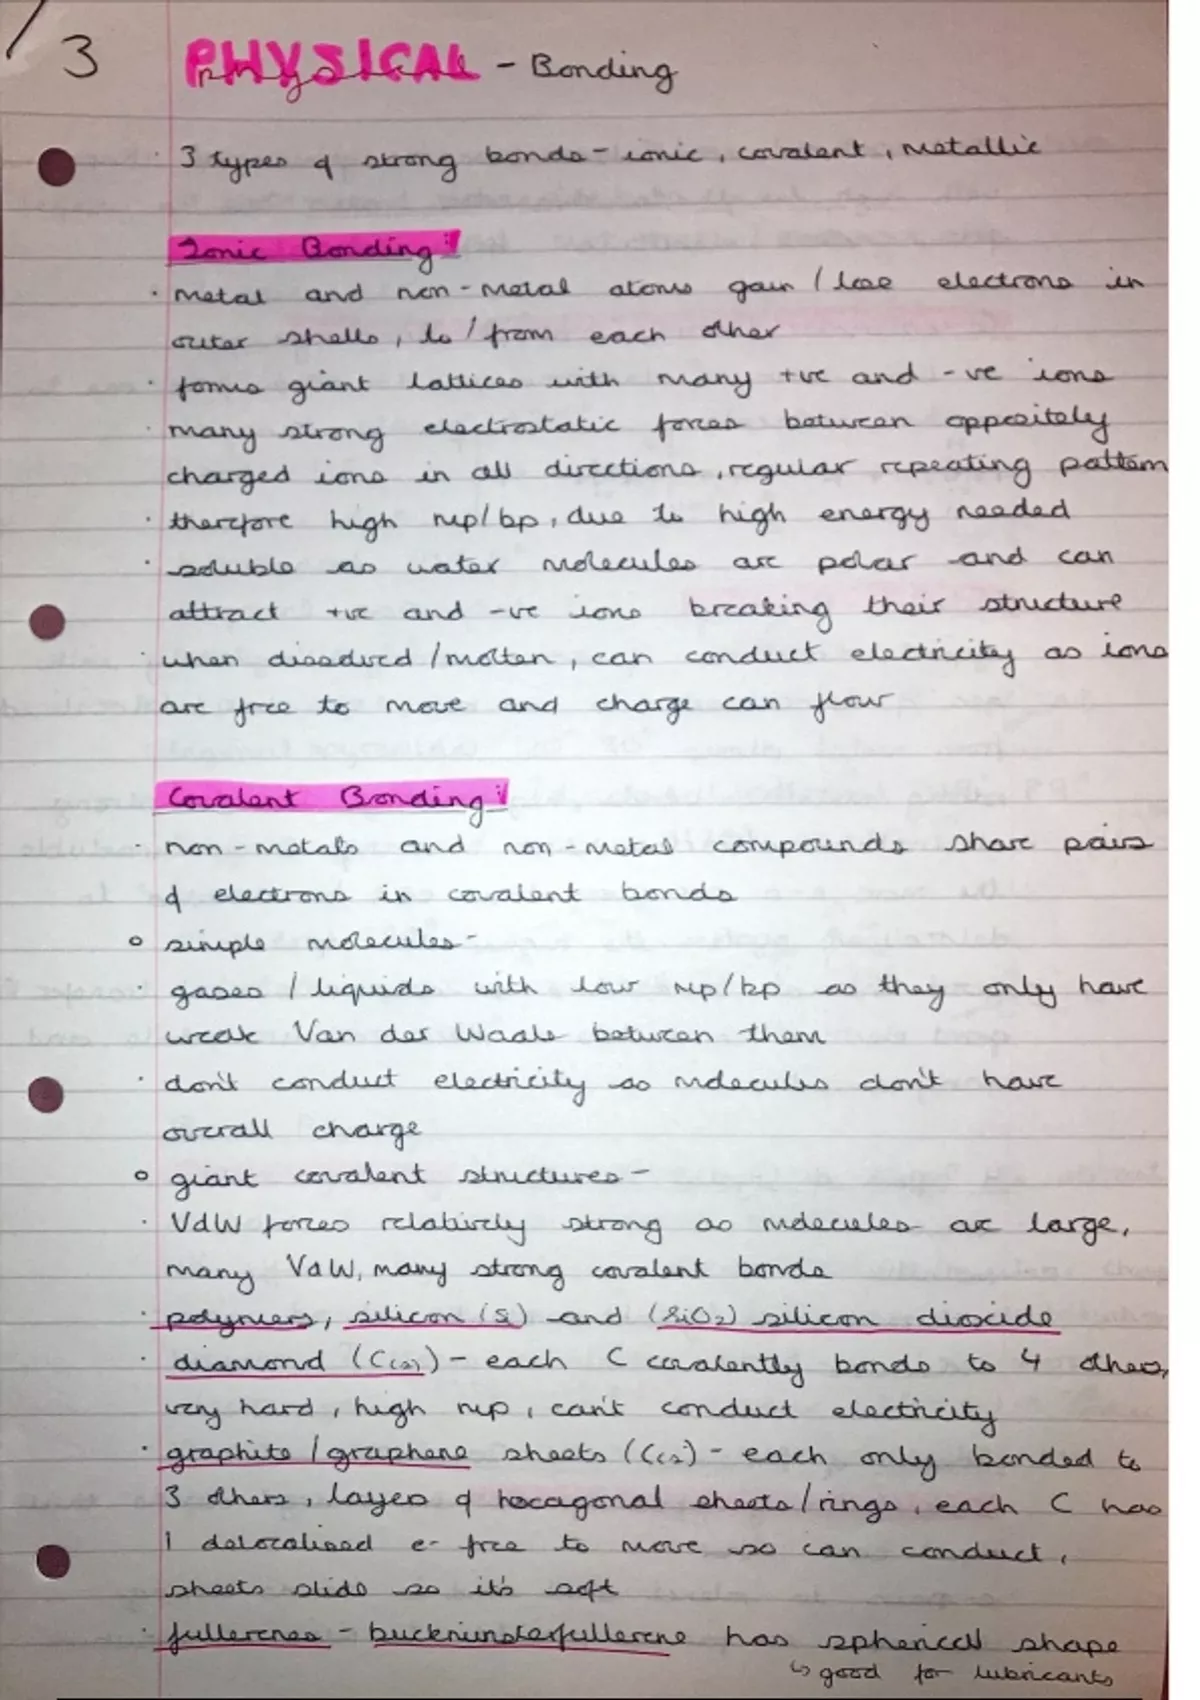 3 PHYSICAL - Bonding
· 3 types of strong bonds - ionic, covalent, metallic
Ionic Bonding:
· metal and non-metal atoms gain / lose electrons in
outer shells, to / from each other
· forms giant lattices with many +ve and -ve ions
· many strong electrostatic forces between oppositely
charged ions in all directions, regular repeating pattern
· therefore high mp/bp, due to high energy needed
· soluble as water molecules are polar and can
attract +ve and -ve ions breaking their structure
· when dissolved / molten, can conduct electricity as ions
are free to move and charge can flow
Covalent Bonding:
· non-metals and non-metal compounds share pairs
of electrons in covalent bonds
o simple molecules -
· gases / liquids with low mp/bp as they only have
weak Van der Waals between them
· don't conduct electricity as molecules don't have
overall charge
o giant covalent structures -
· VdW forces relatively strong as molecules are large,
many VdW, many strong covalent bonds
· polymers, silicon (Si) and (SiO2) silicon dioxide
· diamond (C(s)) - each C covalently bonds to 4 others,
very hard, high mp, can't conduct electricity
· graphite / graphene sheets (C(s)) - each only bonded to
3 others, layers of hexagonal sheets/rings, each C has
1 delocalised e- free to move so can conduct,
sheets slide so it's soft
· fullerenes - buckminsterfullerene has spherical shape
↳ good for lubricants